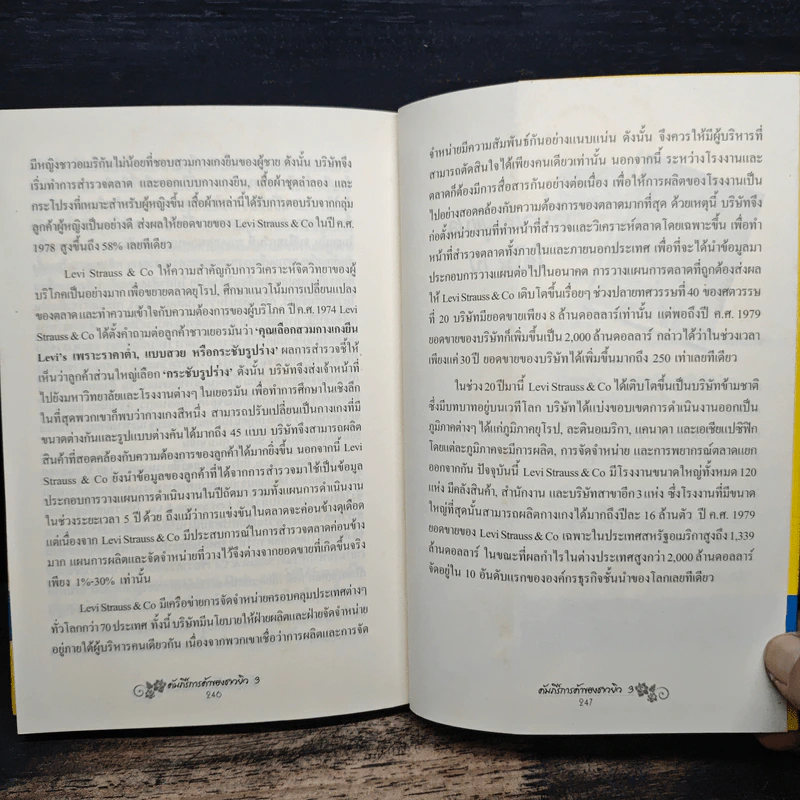 มีหญิงชาวอเมริกันไม่น้อยที่ชอบสวมกางเกงยีนของผู้ชาย ดังนั้น บริษัทจึง
เริ่มทำการสำรวจตลาด และออกแบบกางเกงยีน, เสื้อผ้าชุดลำลอง และ
กระโปรงที่เหมาะสำหรับผู้หญิงขึ้น เสื้อผ้าเหล่านี้ได้รับการตอบรับจากกลุ่ม
ลูกค้าผู้หญิงเป็นอย่างดี ส่งผลให้ยอดขายของ Levi Strauss & Co ในปี ค.ศ.
1978 สูงขึ้นถึง 58% เลยทีเดียว
Levi Strauss & Co ให้ความสำคัญกับการวิเคราะห์จิตวิทยาของผู้
บริโภคเป็นอย่างมาก เพื่อขยายตลาดยุโรป, ศึกษาแนวโน้มการเปลี่ยนแปลง
ของตลาด และทำความเข้าใจกับความต้องการของผู้บริโภค ปี ค.ศ. 1974 Levi
Strauss & Co ได้ตั้งคำถามต่อลูกค้าชาวเยอรมันว่า 'คุณเลือกสวมกางเกงยีน
Levi's เพราะราคาต่ำ, แบบสวย หรือกระชับรูปร่าง' ผลการสำรวจชี้ให้
เห็นว่าลูกค้าส่วนใหญ่เลือก 'กระชับรูปร่าง' ดังนั้น บริษัทจึงส่งเจ้าหน้าที่
ไปยังมหาวิทยาลัยและโรงงานต่างๆ ในเยอรมัน เพื่อทำการศึกษาในเชิงลึก
ในที่สุดพวกเขาก็พบว่ากางเกงสีหนึ่ง สามารถปรับเปลี่ยนเป็นกางเกงที่มี
ขนาดต่างกันและรูปแบบต่างกันได้มากถึง 45 แบบ บริษัทจึงสามารถผลิต
สินค้าที่สอดคล้องกับความต้องการของลูกค้าได้มากยิ่งขึ้น นอกจากนี้ Levi
Strauss & Co ยังนำข้อมูลของลูกค้าที่ได้จากการสำรวจมาใช้เป็นข้อมูล
ประกอบการวางแผนการดำเนินงานในปีถัดมา รวมทั้งแผนการดำเนินงาน
ในช่วงระยะเวลา 5 ปีด้วย ถึงแม้ว่าการแข่งขันในตลาดจะค่อนข้างดุเดือด
แต่เนื่องจาก Levi Strauss & Co มีประสบการณ์ในการสำรวจตลาดค่อนข้าง
มาก แผนการผลิตและจัดจำหน่ายที่วางไว้จึงต่างจากยอดขายที่เกิดขึ้นจริง
เพียง 1%-30% เท่านั้น
Levi Strauss & Co มีเครือข่ายการจัดจำหน่ายครอบคลุมประเทศต่างๆ
ทั่วโลกกว่า 70 ประเทศ ทั้งนี้ บริษัทมีนโยบายให้ฝ่ายผลิตและฝ่ายจัดจำหน่าย
อยู่ภายใต้ผู้บริหารคนเดียวกัน เนื่องจากพวกเขาเชื่อว่าการผลิตและการจัด
คัมภีร์การค้าของชาวยิว 3
246
จำหน่ายมีความสัมพันธ์กันอย่างแนบแน่น ดังนั้น จึงควรให้มีผู้บริหารที่
สามารถตัดสินใจได้เพียงคนเดียวเท่านั้น นอกจากนี้ ระหว่างโรงงานและ
ตลาดก็ต้องมีการสื่อสารกันอย่างต่อเนื่อง เพื่อให้การผลิตของโรงงานเป็น
ไปอย่างสอดคล้องกับความต้องการของตลาดมากที่สุด ด้วยเหตุนี้ บริษัทจึง
ก่อตั้งหน่วยงานที่ทำหน้าที่สำรวจและวิเคราะห์ตลาดโดยเฉพาะขึ้น เพื่อทำ
หน้าที่สำรวจตลาดทั้งภายในและภายนอกประเทศ เพื่อที่จะได้นำข้อมูลมา
ประกอบการวางแผนต่อไปในอนาคต การวางแผนการตลาดที่ถูกต้องส่งผล
ให้ Levi Strauss & Co เติบโตขึ้นเรื่อยๆ ช่วงปลายทศวรรษที่ 40 ของศตวรรษ
ที่ 20 บริษัทมียอดขายเพียง 8 ล้านดอลลาร์เท่านั้น แต่พอถึงปี ค.ศ. 1979
ยอดขายของบริษัทก็เพิ่มขึ้นเป็น 2,000 ล้านดอลลาร์ กล่าวได้ว่าในช่วงเวลา
เพียงแค่ 30 ปี ยอดขายของบริษัทได้เพิ่มขึ้นมากถึง 250 เท่าเลยทีเดียว
ในช่วง 20 ปีมานี้ Levi Strauss & Co ได้เติบโตขึ้นเป็นบริษัทข้ามชาติ
ซึ่งมีบทบาทอยู่บนเวทีโลก บริษัทได้แบ่งขอบเขตการดำเนินงานออกเป็น
ภูมิภาคต่างๆ ได้แก่ภูมิภาคยุโรป, ละตินอเมริกา, แคนาดา และเอเชียแปซิฟิก
โดยแต่ละภูมิภาคจะมีการผลิต, การจัดจำหน่าย และการพยากรณ์ตลาดแยก
ออกจากกัน ปัจจุบันนี้ Levi Strauss & Co มีโรงงานขนาดใหญ่ทั้งหมด 120
แห่ง มีคลังสินค้า, สำนักงาน และบริษัทสาขาอีก 3 แห่ง ซึ่งโรงงานที่มีขนาด
ใหญ่ที่สุดนั้นสามารถผลิตกางเกงได้มากถึงปีละ 16 ล้านตัว ปี ค.ศ. 1979
ยอดขายของ Levi Strauss & Co เฉพาะในประเทศสหรัฐอเมริกาสูงถึง 1,339
ล้านดอลลาร์ ในขณะที่ผลกำไรในต่างประเทศสูงกว่า 2,000 ล้านดอลลาร์
จัดอยู่ใน 10 อันดับแรกขององค์กรธุรกิจชั้นนำของโลกเลยทีเดียว
คัมภีร์การค้าของชาวยิว 3
247